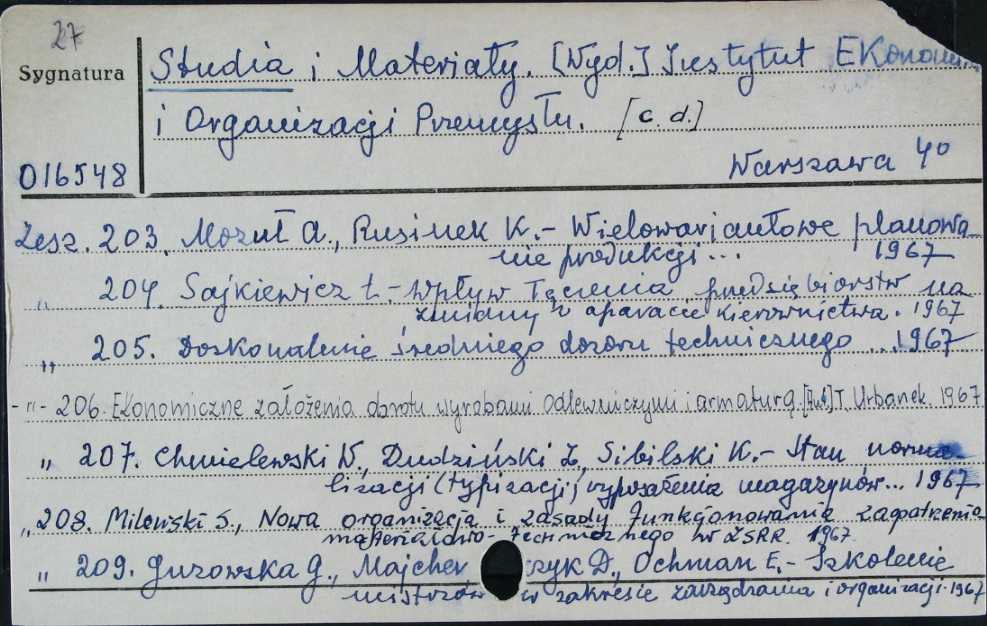 27
Sygnatura
Studia i Materiały. [Wyd.] Instytut Ekonomi
i Organizacji Przemysłu. [c. d.]
016548
Warszawa 4°
Zesz. 203. Mozuł A., Rusinek K.- Wielowariantowe planowa-
nie produkcji... 1967
„ 204. Sajkiewicz Ł.- Wpływ łączenia przedsiębiorstw na
zmiany w aparacie kierownictwa. 1967
„ 205. Doskonalenie średniego dozoru technicznego ... 1967
-"- 206. Ekonomiczne założenia obrotu wyrobami odlewniczymi i armaturą. [Aut.] T. Urbanek. 1967
„ 207. Chmielewski W., Dudziński Z., Sibilski K.- Stan norma-
lizacji (typizacji) wyposażenia magazynów... 1967
„ 208. Milewski S., Nowa organizacja i zasady funkcjonowania zaopatrzenia
materiałowo-technicznego w ZSRR. 1967.
„ 209. Gurowska G., Majcher czyk D., Ochman E.- Szkolenie
mistrzów w zakresie zarządzania i organizacji. 1967